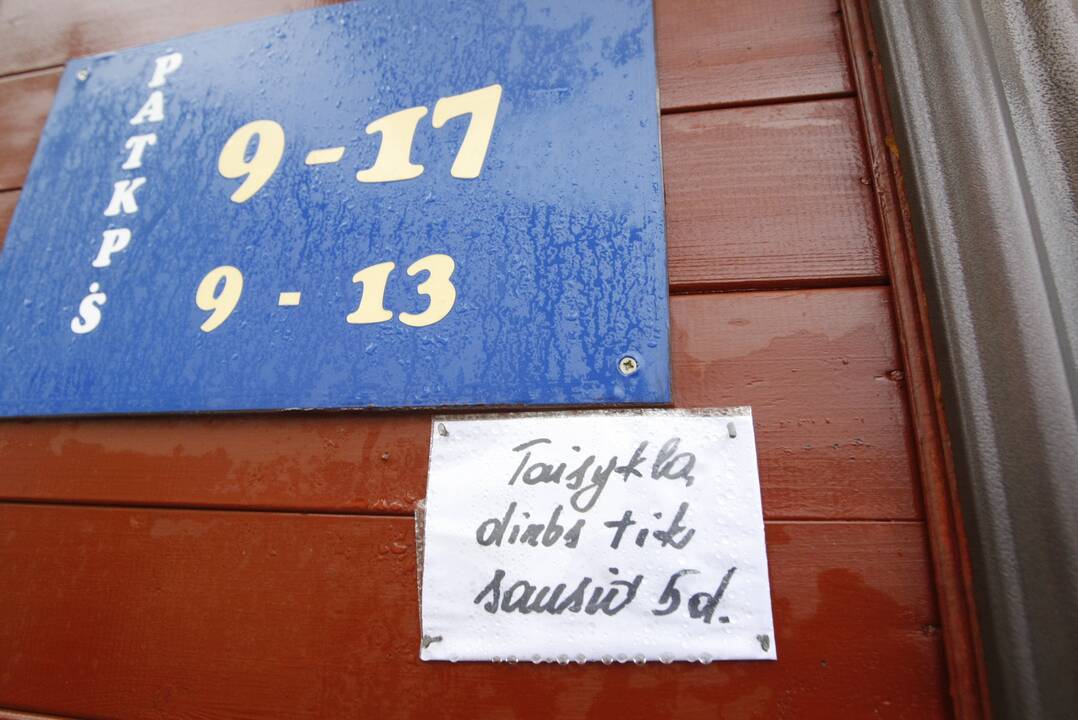 P
A
T
K
P
Š
9-17
9 - 13
Taisykla
dirbs tik
sausio 5d.